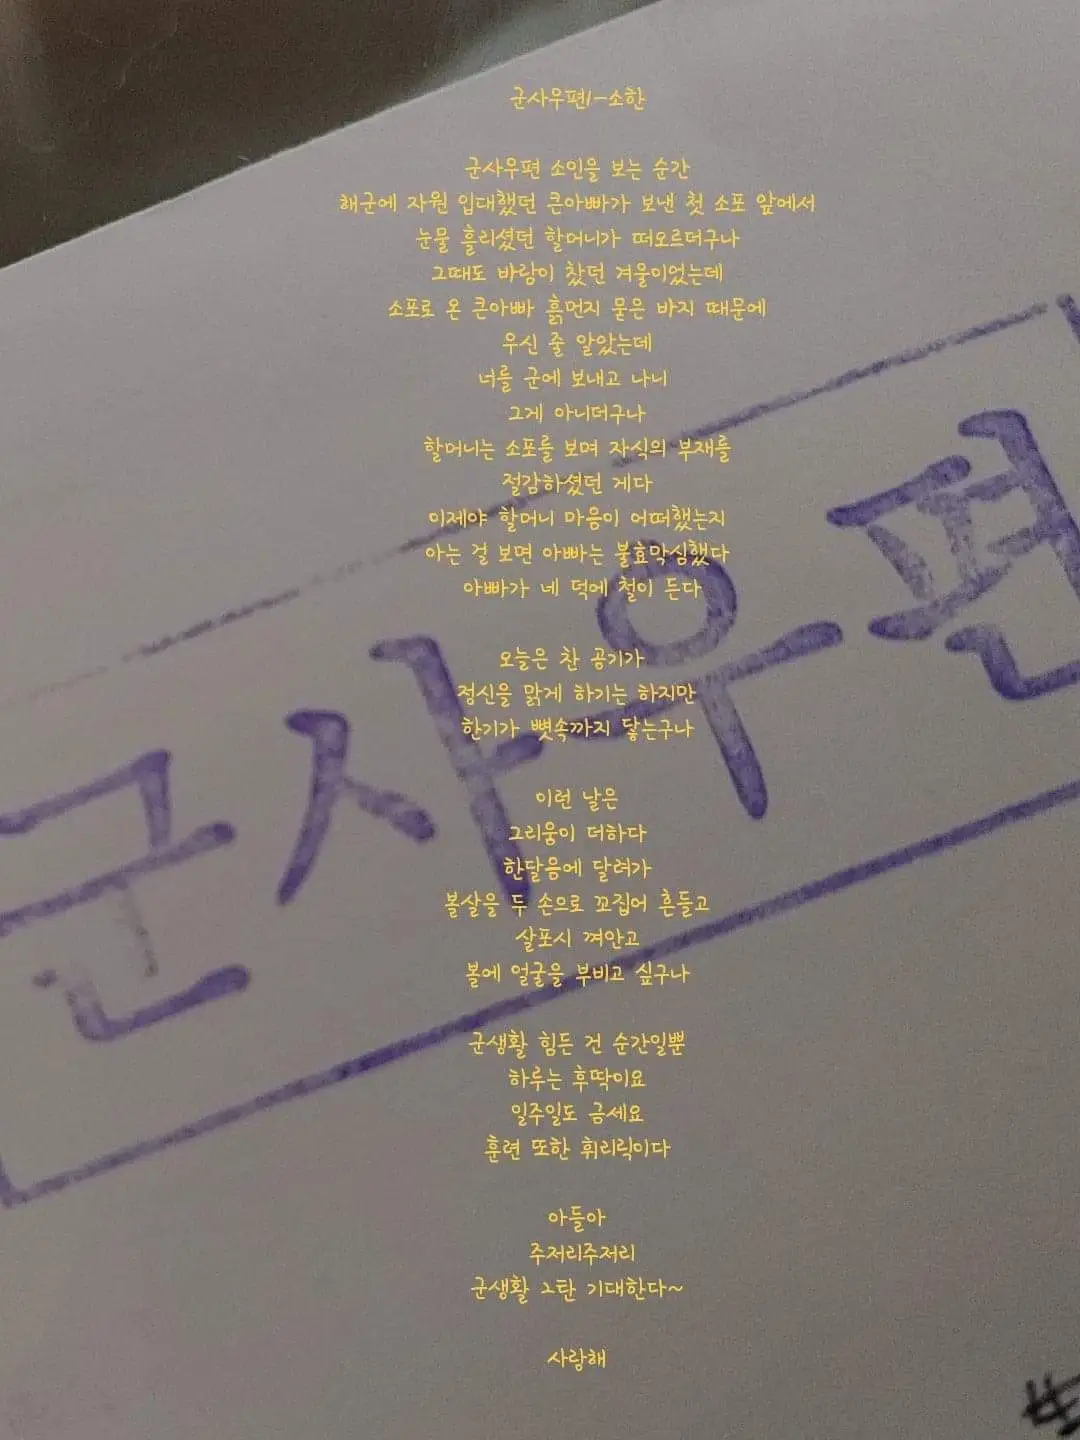 군사우편1-소한

군사우편 소인을 보는 순간
해군에 자원 입대했던 큰아빠가 보낸 첫 소포 앞에서
눈물 흘리셨던 할머니가 떠오르더구나
그때도 바람이 찼던 겨울이었는데
소포로 온 큰아빠 흙먼지 묻은 바지 때문에
우신 줄 알았는데
너를 군에 보내고 나니
그게 아니더구나
할머니는 소포를 보며 자식의 부재를
절감하셨던 게다
이제야 할머니 마음이 어떠했는지
아는 걸 보면 아빠는 불효막심했다
아빠가 네 덕에 철이 든다

오늘은 찬 공기가
정신을 맑게 하기는 하지만
한기가 뼛속까지 닿는구나

이런 날은
그리움이 더하다
한달음에 달려가
볼살을 두 손으로 꼬집어 흔들고
살포시 껴안고
볼에 얼굴을 부비고 싶구나

군생활 힘든 건 순간일뿐
하루는 후딱이요
일주일도 금세요
훈련 또한 휘리릭이다

아들아
주저리주저리
군생활 2탄 기대한다~

사랑해

군사우편